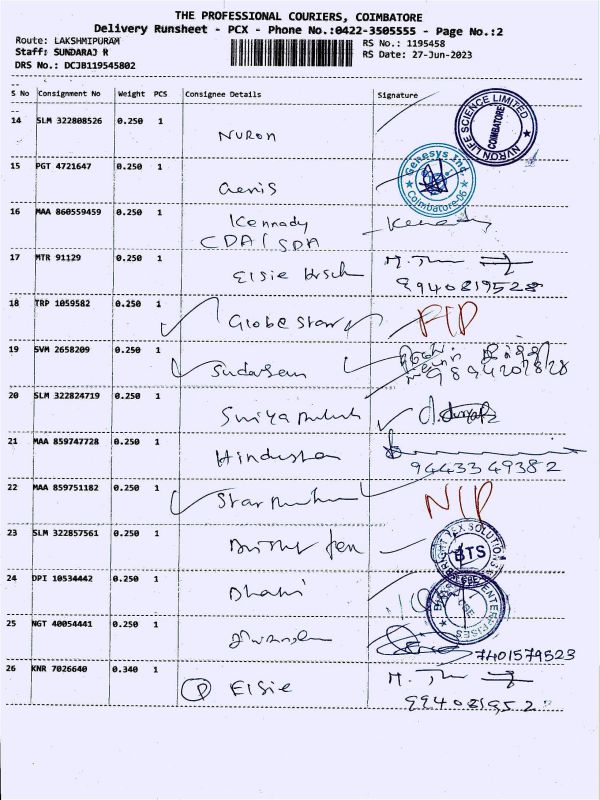 THE PROFESSIONAL COURIERS, COIMBATORE
Delivery Runsheet - PCX - Phone No.:0422-3505555 - Page No.:2
Route: LAKSHMIPURAM RS No.: 1195458
Staff: SUNDARAJ R RS Date: 27-Jun-2023
DRS No.: DCJB119545802
S No Consignment No Weight PCS Consignee Details Signature
14 SLM 322808526 0.250 1 NURON
NURON LIFE SCIENCE LIMITED COIMBATORE
15 PGT 4721647 0.250 1 Genis
Genesys Ind. Coimbatore-06
16 MAA 860559459 0.250 1 Kennady Kennady
CDA / SDA
17 MTR 91129 0.250 1 Elsie M.
9940819528
18 TRP 1059582 0.250 1 Globe Star
19 SVM 2658209 0.250 1 Sudarsan
9894207828
20 SLM 322824719 0.250 1
21 MAA 859747728 0.250 1 Hindusthan
9443349382
22 MAA 859751182 0.250 1 Star
23 SLM 322857561 0.250 1 Bright Tex
BRIGHT TEX SOLUTIONS BTS
24 DPI 10534442 0.250 1 Dhabi
ENTERPRISES
25 NGT 40054441 0.250 1
7401579523
26 KNR 7026640 0.340 1 P Elsie M.
994081952